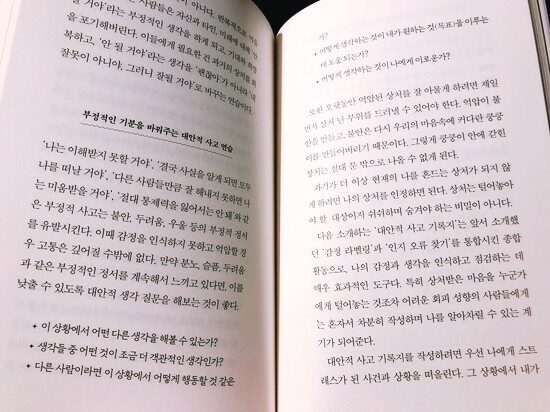 반복적으로
사람들은 자신과 타인, 미래에 대해
거야'라는 부정적인 생각을 하게 되고, 기대와 희망
을 포기해버린다. 이들에게 필요한 건 과거의 상처를 회
복하고, '안 될 거야'라는 생각을 '괜찮아'가 아니라 '내
잘못이 아니야, 그러니 잘될 거야'로 바꾸는 연습이다.
부정적인 기분을 바꿔주는 대안적 사고 연습
'나는 이해받지 못할 거야', '결국 사실을 알게 되면 모두
나를 떠날 거야', '다른 사람들만큼 잘 해내지 못하면 나
는 미움받을 거야', '절대 통제력을 잃어서는 안 돼'와 같
은 부정적 사고는 불안, 두려움, 우울 등의 부정적 정서
를 유발시킨다. 이때 감정을 인식하지 못하고 억압할 경
우 고통은 깊어질 수밖에 없다. 만약 분노, 슬픔, 두려움
과 같은 부정적인 정서를 계속해서 느끼고 있다면, 이를
낮출 수 있도록 대안적 생각 질문을 해보는 것이 좋다.
✦ 이 상황에서 어떤 다른 생각을 해볼 수 있는가?
✦ 생각들 중 어떤 것이 조금 더 객관적인 생각인가?
✦ 다른 사람이라면 이 상황에서 어떻게 행동할 것 같은
가?
✦ 어떻게 생각하는 것이 내가 원하는 것(목표)을 이루는
데 도움 되는가?
✦ 어떻게 생각하는 것이 나에게 이로운가?
또한 오랫동안 억압된 상처를 잘 아물게 하려면 제일
먼저 상처 난 부위를 드러낼 수 있어야 한다. 억압이 불
안을 만들고, 불안은 다시 우리의 마음속에 커다란 쿵쿵
이를 만들어버리기 때문이다. 그렇게 쿵쿵이 안에 갇힌
상처는 절대 문 밖으로 나올 수 없게 된다.
과거가 더 이상 현재의 나를 흔드는 상처가 되지 않
게 하려면 나의 상처를 인정하면 된다. 상처는 털어놓아
야 할 대상이지 쉬쉬하며 숨겨야 하는 비밀이 아니다.
다음 소개하는 '대안적 사고 기록지'는 앞서 소개했
던 '감정 라벨링'과 '인지 오류 찾기'를 통합시킨 종합
활동으로, 나의 감정과 생각을 인식하고 점검하는 데
매우 효과적인 도구다. 특히 상처받은 마음을 누군가
에게 털어놓는 것조차 어려운 회피 성향의 사람들에게
는 혼자서 차분히 작성하며 나를 알아차릴 수 있는 계
기가 되어준다.
대안적 사고 기록지를 작성하려면 우선 나에게 스트
레스가 된 사건과 상황을 떠올린다. 그 상황에서 내가